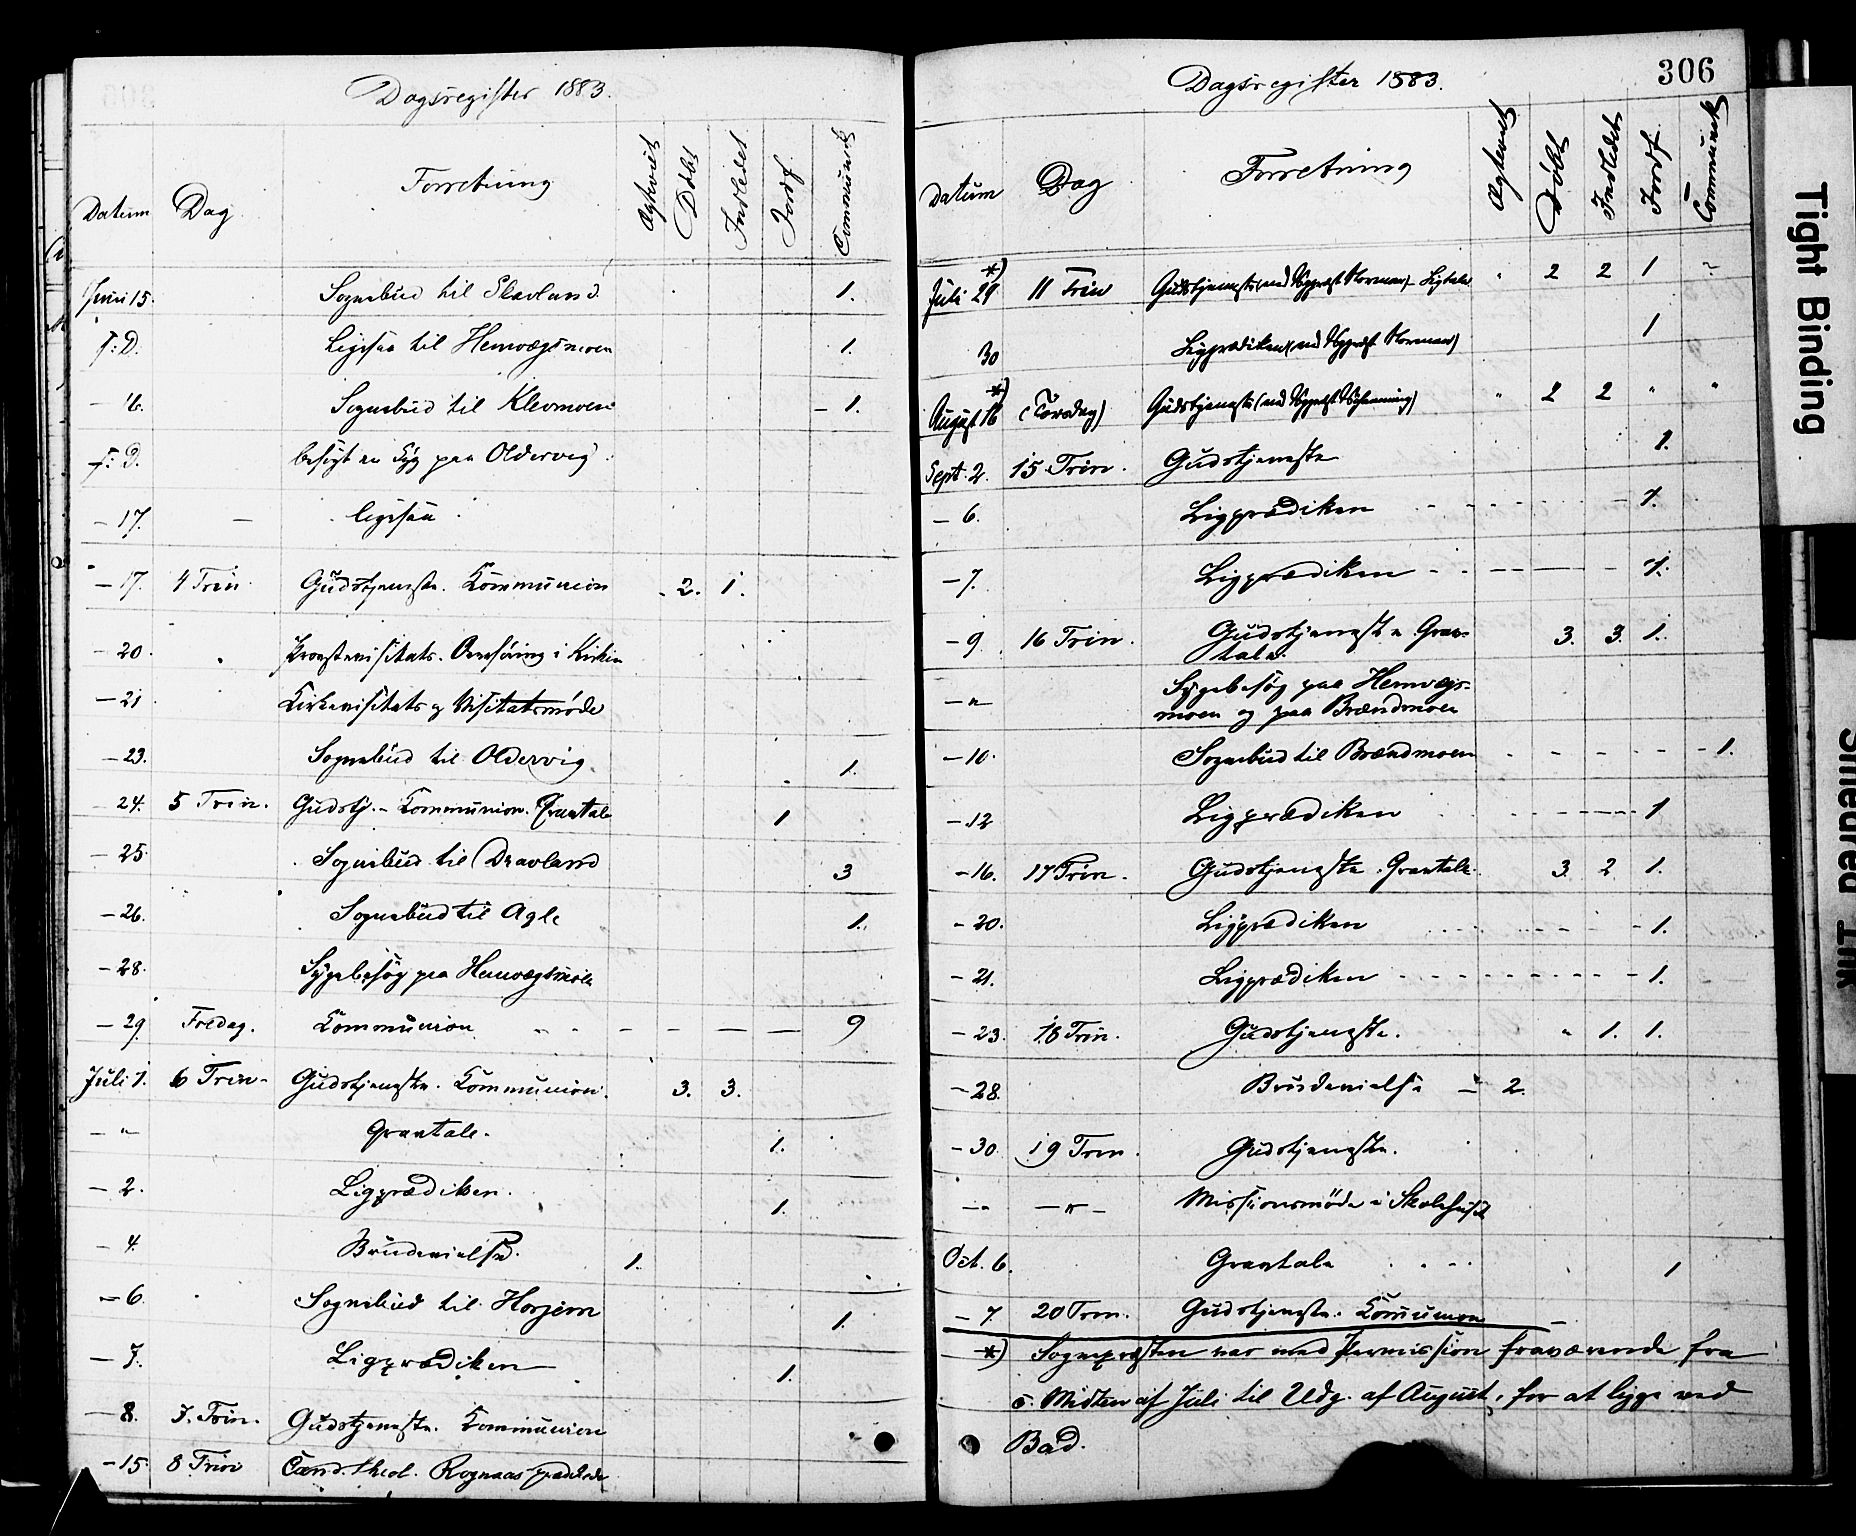 Dagsregister 1883.
Datum Dag Forretning Ægteviet Døbt Indledet Jordf. Communic
Juni 15. Sognebud til 1.
F: D. Ligesaa til Hemvægsmoen 1.
- 16. Sognebud til Klevmoen - 1.
F: D. besøgt en Syg paa Oldervig.
- 17. - ligesaa
- 17. 4 Trin Gudstjeneste. Kommunion 2. 1.
- 20. Provstevisitats. i Kirken
- 21 Kirkevisitats og Visitatsmøde
- 23. Sognebud til Oldervig. 1.
- 24. 5 Trin. Gudstj. - Kommunion. Gravtale 1
- 25. Sognebud til Dravland 3
- 26. Sognebud til Agle 1.
- 28. Sygebesøg paa Hemvægsmoen
- 29 Fredag. Kommunion " " - - - - 9
Juli 1. 6 Trin. Gudstjeneste. Kommunion. 3. 3.
- " Gravtale. 1.
- 2. Ligprædiken. 1.
- 4. Brudevielse. 1.
- 6. Sognebud til Horjem 1.
- 7. Ligprædiken 1.
- 8. 7. Trin. Gudstjeneste. Kommunion
- 15. 8 Trin Cand. theol. Rognaas prædikede
306
Dagsregister 1883.
Datum Dag Forretning Ægteviet Døbt Indledet Jordf. Communic
Juli 29 *) 11 Trin Gudstjeneste (ved Norman) - Ligtale " 2 2 1 "
30 Ligprædiken (ved Norman) 1
August 16 *) (Torsdag) Gudstjeneste (ved " 2 2 " "
Sept. 2. 15 Trin. Gudstjeneste 1.
- 6. Ligprædiken - - - - - 1.
- 7. Ligprædiken - - - - - 1.
- 9. 16 Trin. Gudstjeneste Grav- 3. 3. 1.
tale.
- " - Sygebesøg paa Hemvægs-
moen og paa Brændmoen
- 10. Sognebud til Brændmoen - - - - - 1.
- 12 Ligprædiken - - - - 1
- 16. 17 Trin. Gudstjeneste. Gravtale. 3. 2 1.
- 20. Ligprædiken - - - - 1.
- 21. Ligprædiken - - - - - 1.
- 23. 18 Trin. Gudstjeneste. " 1. 1.
- 28. Brudevielse - 2.
- 30. 19 Trin. Gudstjeneste.
- " - " - Missionsmøde i Skolehuset
Oct. 6. Gravtale 1
- 7. 20 Trin. Gudstjeneste. Kommunion -
*) Sognepræsten var med Permission fraværende fra
c. Midten af Juli til Udg. af August, for at ligge ved
Bad.
Tight Binding
Smeared Ink